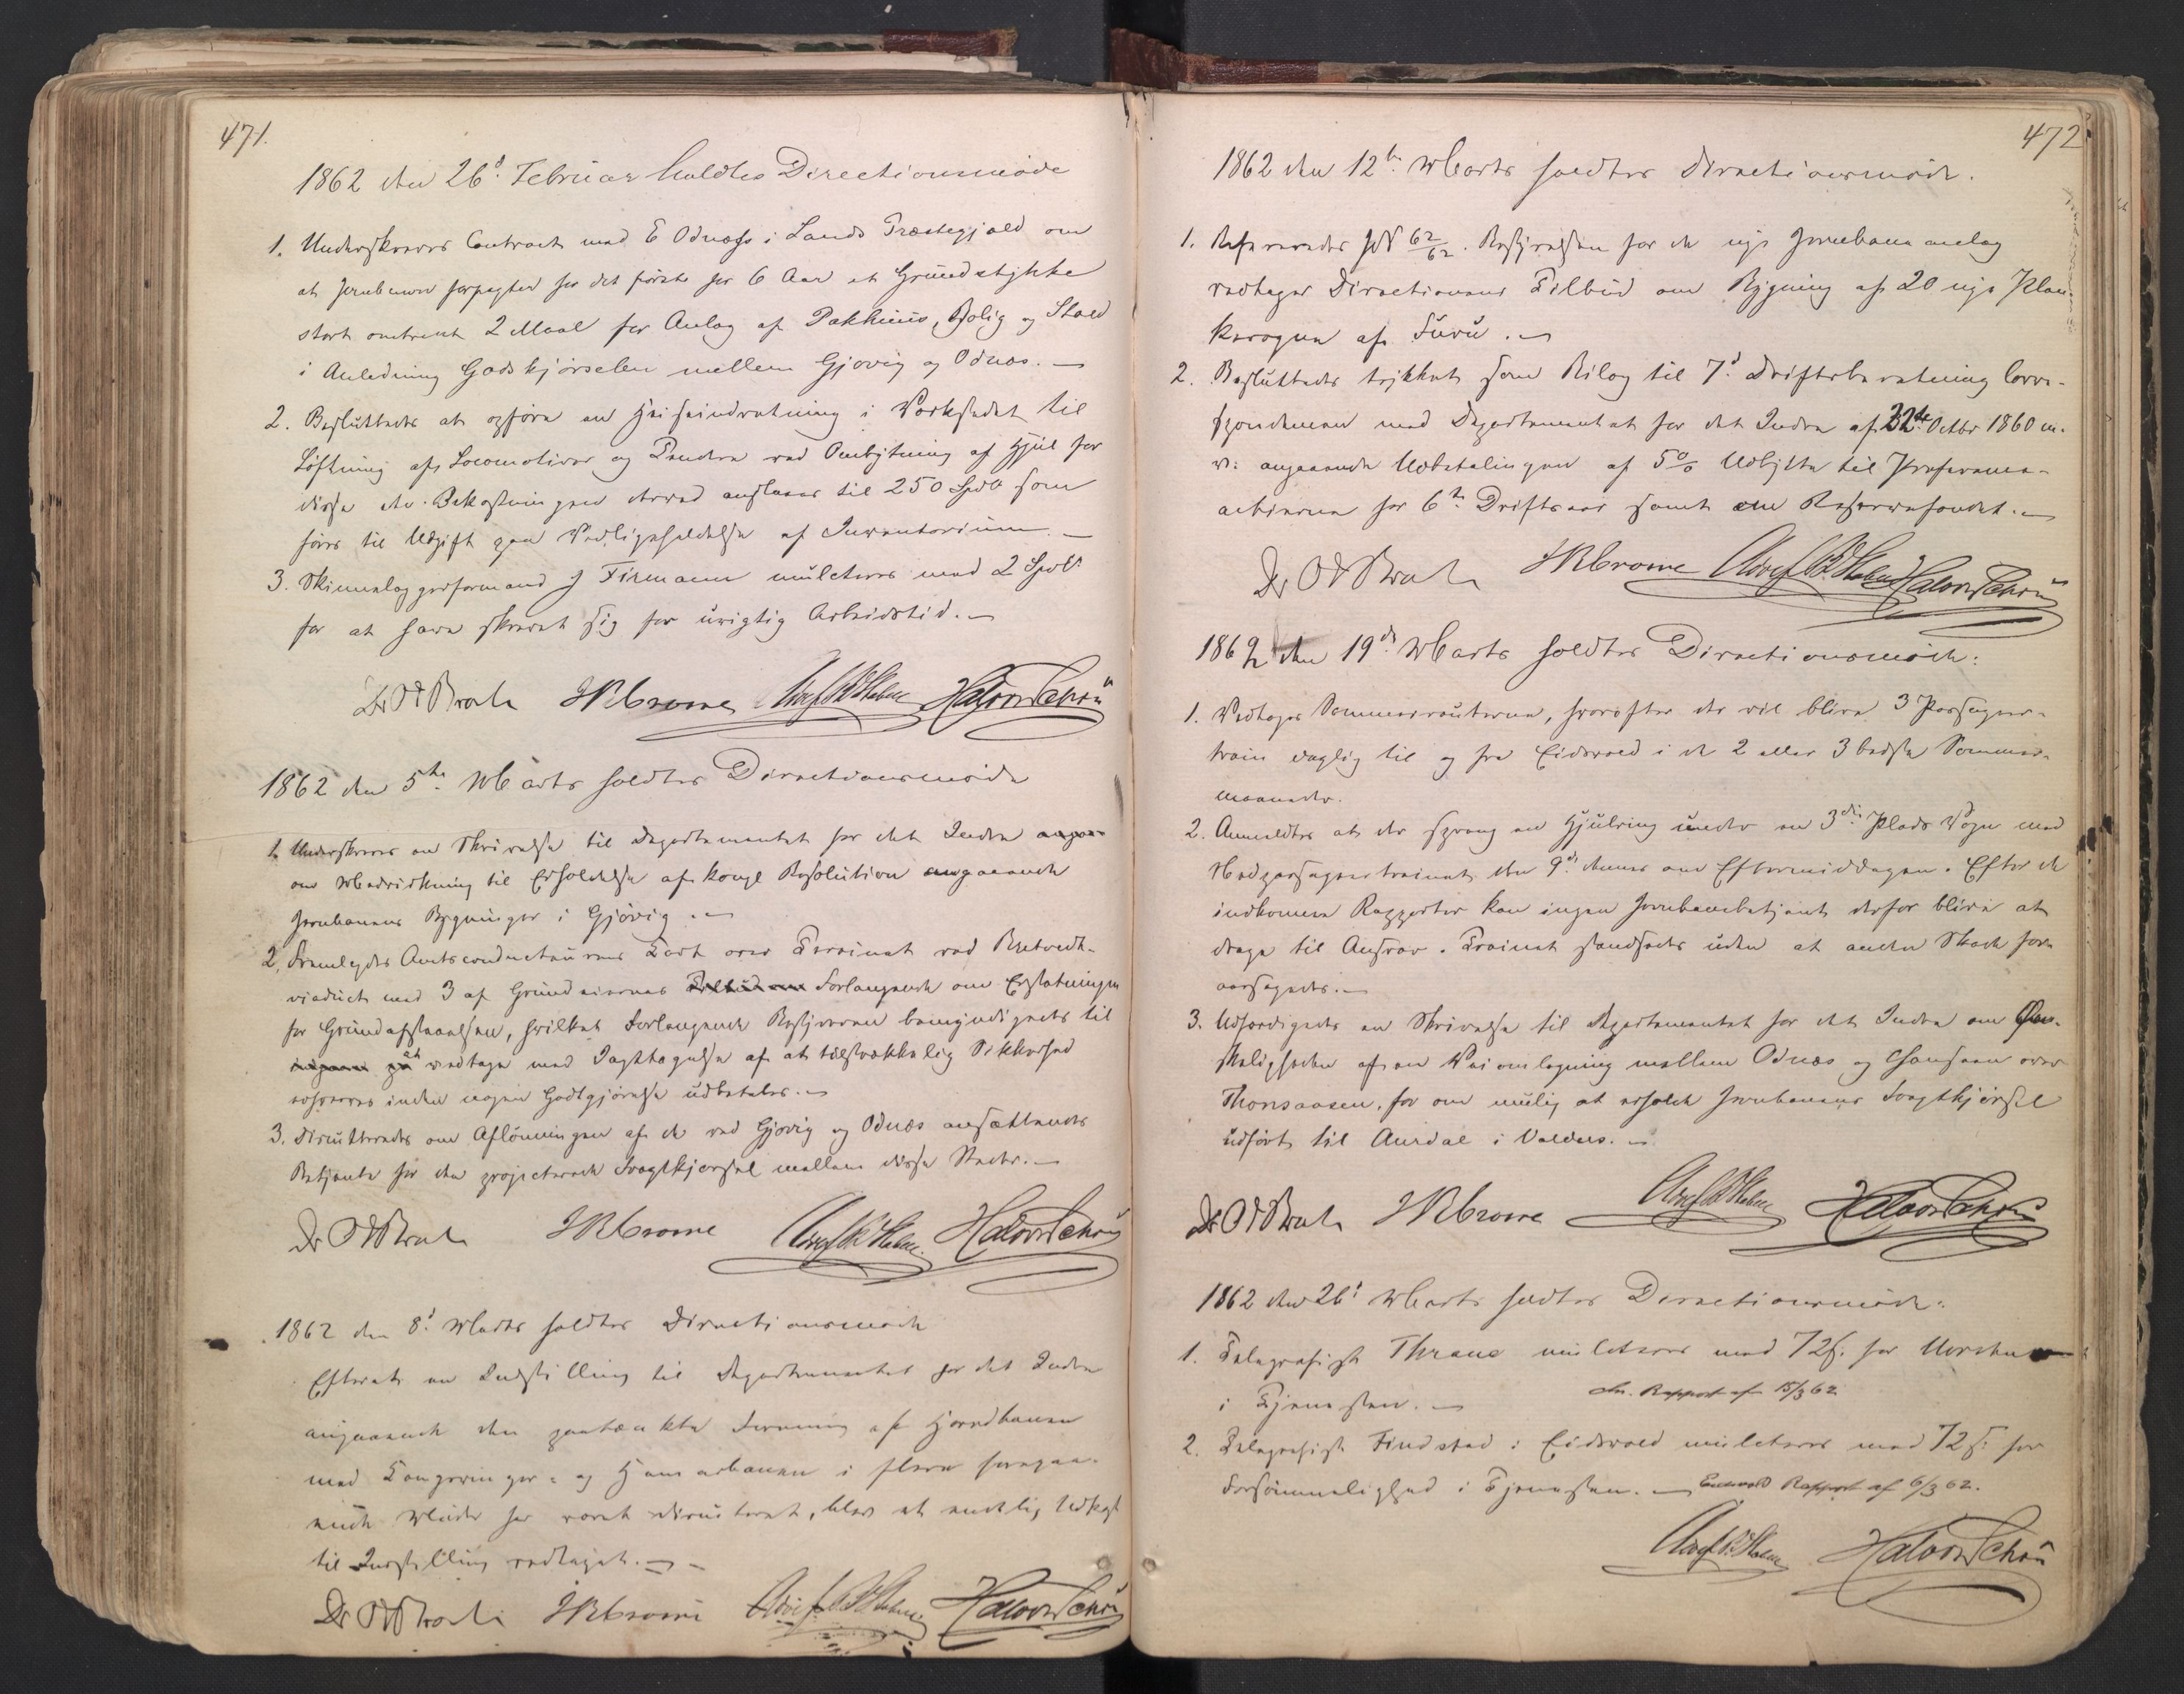 471.
1862 den 26d. Februar holdtes Directionsmøde
1. Underskreves Contract med E Odnæss i Lands Præstegjæld om
at Jernbanen forpagter for det første for 6 Aar et Grundstykke
stort omtrent 2 Maal for Anlæg af Pakhuus, Bolig og Stald
i Anledning Godskjørselen mellem Gjøvig og Odnæs. —
2. Besluttedes at opføre en Heiseindretning i Værkstedet til
Løftning af Locomotiver og Tendere ved Ombytning af Hjul for
disse etc. Bekostningen derved anslaaes til 250 Spd som
føres til Udgift paa Vedligeholdelse af Inventarium. —
3. Skinnelæggerformand J Firmann mulcteres med 2 Spd
for at have skrevet sig for urigtig Arbeidstid. —
HRCrowe Halvor Schou
1862 den 5te Marts holdtes Directionsmøde
1. Underskreves en Skrivelse til Departementet for det Indre
om Medvirkning til Erholdelse af kongl Resolution angaaende
Jernbanens Bygninger i Gjøvig. —
2. Fremlagdes Amtsconducteurens Kart over Terrainet ved
viaduct med 3 af Grundeiernes Forlangende om Erstatningen
for Grundafstaaelsen, hvilket Forlangende Bestyreren bemyndigedes til
at vedtage med Iagttagelse af at tilstrækkelig Sikkerhed
erhverves inden nogen Godtgjørelse udbetales. —
3. Discutteredes om Aflønningen af de ved Gjøvig og Odnæs ansættendes
Betjente for den projecterede Fragtkjørsel mellem disse Steder. —
HRCrowe Halvor Schou
1862 den 8d. Marts holdtes Directionsmøde
Efterat en Indstilling til Departementet for det Indre
angaaende den paatænkte Forening af Hovedbanen
med Kongsvinger- og Hamarbanen i flere foregaa-
ende Møder har været discuteret, blev et endelig Udkast
til Indstilling vedtaget. —
HRCrowe Halvor Schou
472
1862 den 12te Marts holdtes Directionsmøde.
1. Refereredes 62/62. Bestyrelsen for de nye Jernbaneanlæg
vedtager Directionens Tilbud om Bygning af 20 nye Plan-
kevogne af Furu. —
2. Besluttedes trykket som Bilag til 7d. Driftsberetning Corre-
spondencen med Departementet for det Indre af 22de Octbr 1860 m.
angaaende Udbetalingen af 5% Udbytte til Præference-
actierne for 6te Driftsaar samt om Reservefondet. —
HRCrowe Halvor Schou
1862 den 19de Marts holdtes Directionsmøde:
1. Vedtoges Sommerrouterne, hvorefter der vil blive 3 Passager-
train daglig til og fra Eidsvold i de 2 eller 3 bedste Sommer-
maaneder.
2. Anmeldtes at der sprang en Hjulring under en 3die Plads Vogn med
Nedpassagertrainet den 9de dennes om Eftermiddagen. Efter de
indkomne Rapporter kan ingen Jernbanebetjent derfor blive at
drage til Ansvar. Trainet standsedes uden at anden Skade for-
aarsagedes. —
3. Udfærdigedes en Skrivelse til Departementet for det Indre om Øn-
skeligheden af en Veiomlægning mellem Odnæs og over
Thonsaasen, for om mulig at erholde Jernbanens Fragtkjørsel
udført til Aurdal i Valders. —
HRCrowe Halvor Schou
1862 den 26d Marts holdtes Directionsmøde:
1. Telegrafist Thrane mulcteres med 72 s. for Uorden
i Tjenesten. — Rapport af 15/3 62
2. Telegrafist Findstad i Eidsvold mulcteres med 72 s. for
Forsømmelighed i Tjenesten. — Eidsvold Rapport af 6/3 62.
Halvor Schou